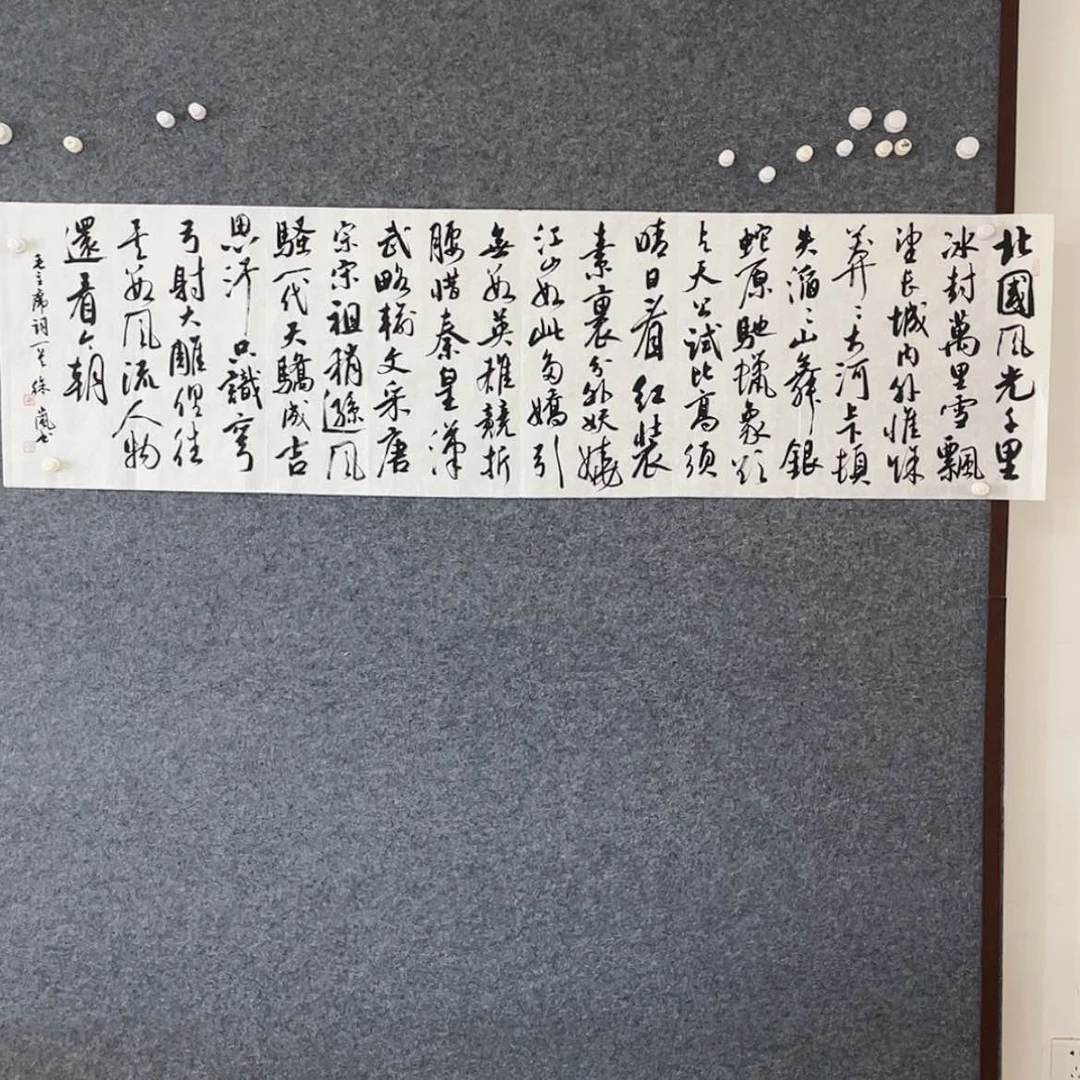 北國风光千里
冰封萬里雪飄
望长城内外惟馀
莽〻大河上下頓
失滔〻山舞銀
蛇原馳蠟象欲
与天公试比高须
晴日看红裝
素裹分外妖嬈
江山如此多嬌引
無数英雄競折
腰惜秦皇漢
武略輸文采唐
宗宋祖稍遜风
騷一代天驕成吉
思汗只識彎
弓射大雕俱往
矣数风流人物
還看今朝
毛主席词一首 徐嵐书